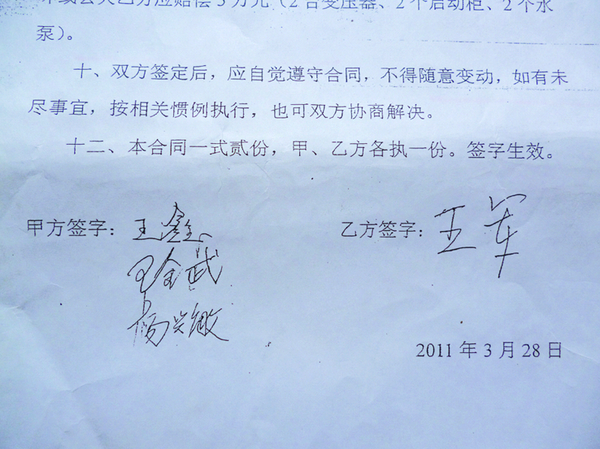 乙方应赔偿5万元（2台变压器、2个启动柜、2个水
泵）。
十、双方签定后，应自觉遵守合同，不得随意变动，如有未
尽事宜，按相关惯例执行，也可双方协商解决。
十二、本合同一式贰份，甲、乙方各执一份。签字生效。
甲方签字：王鑫 乙方签字：王军
王全武
杨兴敏
2011年3月28日